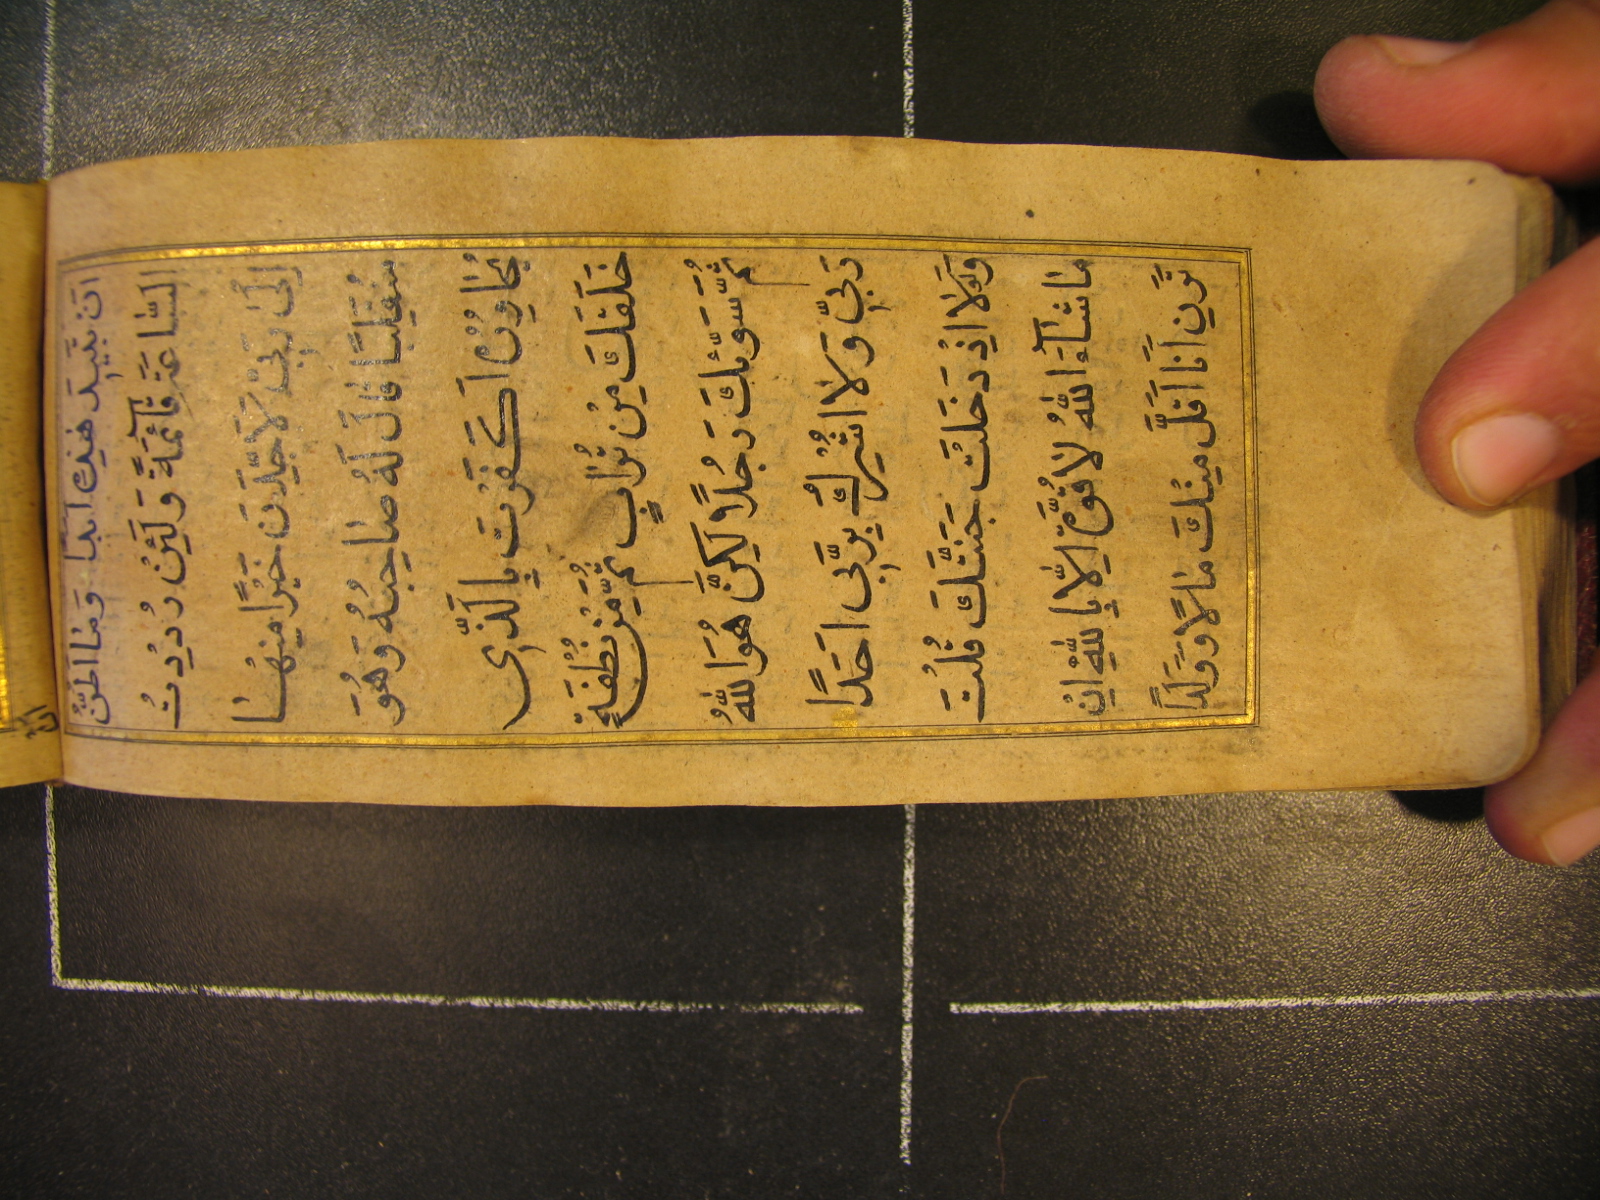 اَنْ تَبِيدَ هٰذِهٖ اَبَدًا وَمَا اَظُنُّ
السَّاعَةَ قَآئِمَةً وَلَئِنْ رُدِدْتُ
اِلٰى رَبِّى لَاَجِدَنَّ خَيْرًا مِنْهَا
مُنْقَلَبًا قَالَ لَهُ صَاحِبُهُ وَهُوَ
يُحَاوِرُهُ اَكَفَرْتَ بِالَّذِى
خَلَقَكَ مِنْ تُرَابٍ ثُمَّ مِنْ نُطْفَةٍ
ثُمَّ سَوّٰيكَ رَجُلًا لٰكِنَّ هُوَ اللّٰهُ
رَبِّى وَلَا اُشْرِكُ بِرَبِّى اَحَدًا
وَلَوْلَا اِذْ دَخَلْتَ جَنَّتَكَ قُلْتَ
مَا شَآءَ اللّٰهُ لَا قُوَّةَ اِلَّا بِاللّٰهِ اِنْ
تَرَنِ اَنَا اَقَلَّ مِنْكَ مَالًا وَوَلَدًا